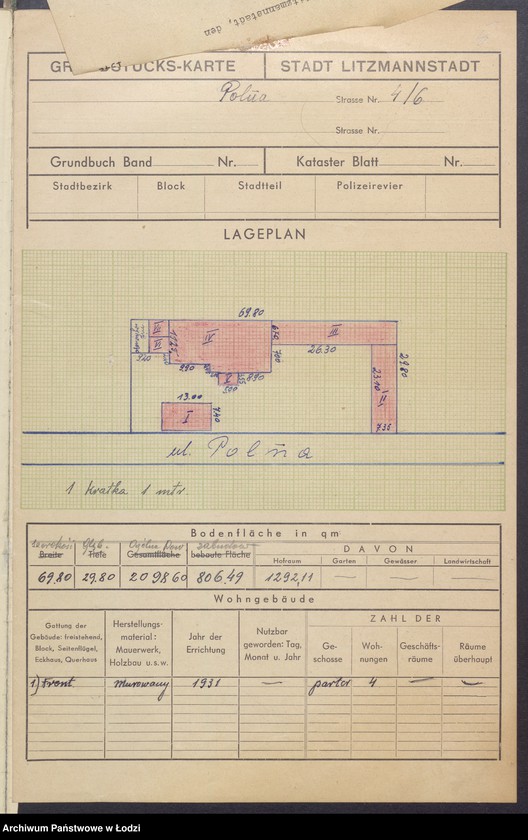 Litzmannstadt, den
STADT LITZMANNSTADT
Polna Strasse Nr. 4/6
Strasse Nr.
Grundbuch Band Nr. Kataster Blatt Nr.
Stadtbezirk Block Stadtteil Polizeirevier
LAGEPLAN
69.80
IV III
26.30
6.40
7.00
29.80
23.10
II
7.35
9.20
9.90
V
5.00
8.90
13.00
I
7.40
ul. Polna
1 kratka 1 mtr.
Bodenfläche in qm
Breite Tiefe Gesamtfläche bebaute Fläche DAVON
Hofraum Garten Gewässer Landwirtschaft
69.80 29.80 2098 60 806.49 1292,11 — — —
Wohngebäude
Gattung der Gebäude: freistehend, Block, Seitenflügel, Eckhaus, Querhaus
Herstellungsmaterial: Mauerwerk, Holzbau u.s.w.
Jahr der Errichtung
Nutzbar geworden: Tag, Monat u. Jahr
ZAHL DER
Geschosse Wohnungen Geschäftsräume Räume überhaupt
1) Front murowany 1931 — parter 4 — —
Archiwum Państwowe w Łodzi